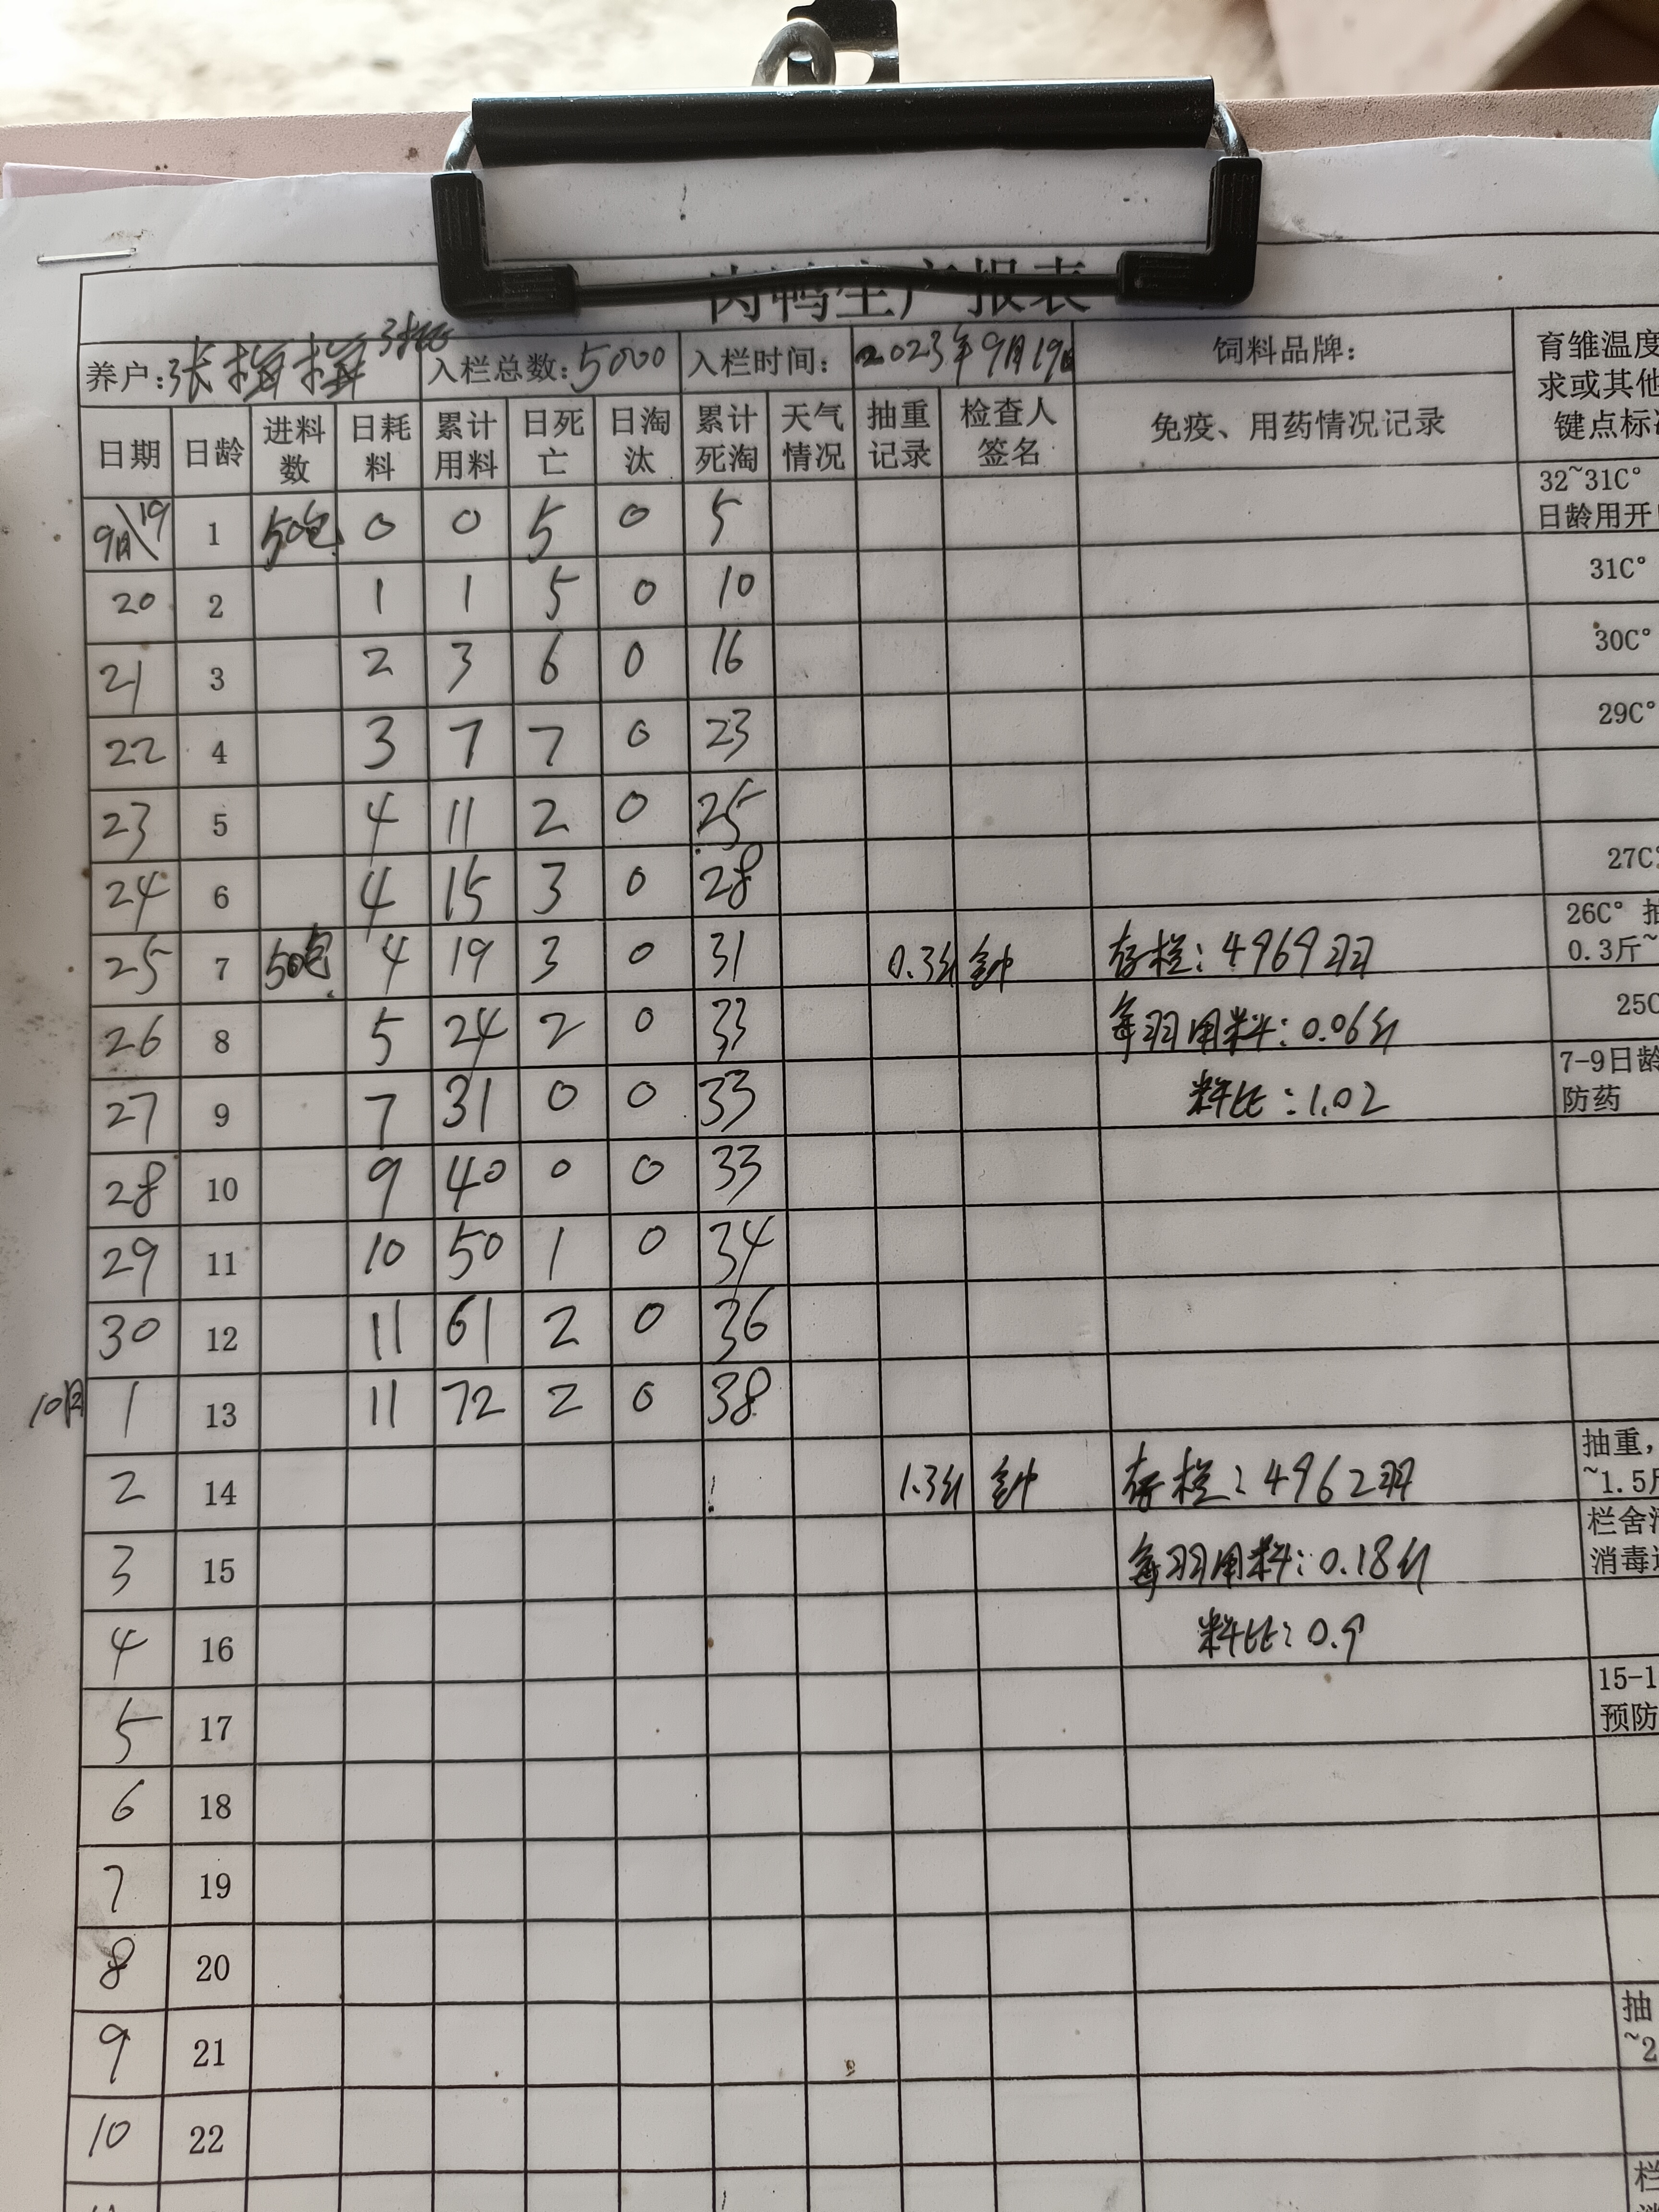 肉鸭生产报表
养户: 张梅梅 3批 入栏总数: 5000 入栏时间: 2023年9月19日 饲料品牌: 育雏温度
求或其他
键点标准
日期 日龄 进料数 日耗料 累计用料 日死亡 日淘汰 累计死淘 天气情况 抽重记录 检查人签名 免疫、用药情况记录
9月19 1 50包 0 0 5 0 5 32~31C°
日龄用开
20 2 1 1 5 0 10 31C°
21 3 2 3 6 0 16 30C°
22 4 3 7 7 0 23 29C°
23 5 4 11 2 0 25
24 6 4 15 3 0 28 27C°
25 7 50包 4 19 3 0 31 0.3斤 存栏: 4969羽 26C° 抽
0.3斤~
26 8 5 24 2 0 33 每羽用料: 0.06斤 25C
27 9 7 31 0 0 33 料比: 1.02 7-9日龄
防药
28 10 9 40 0 0 33
29 11 10 50 1 0 34
30 12 11 61 2 0 36
10月 1 13 11 72 2 0 38
2 14 1.3斤 存栏: 4962羽 抽重,
~1.5斤
3 15 每羽用料: 0.18斤 栏舍消
消毒
4 16 料比: 0.9
5 17 15-1
预防
6 18
7 19
8 20
9 21 抽
~2
10 22
栏